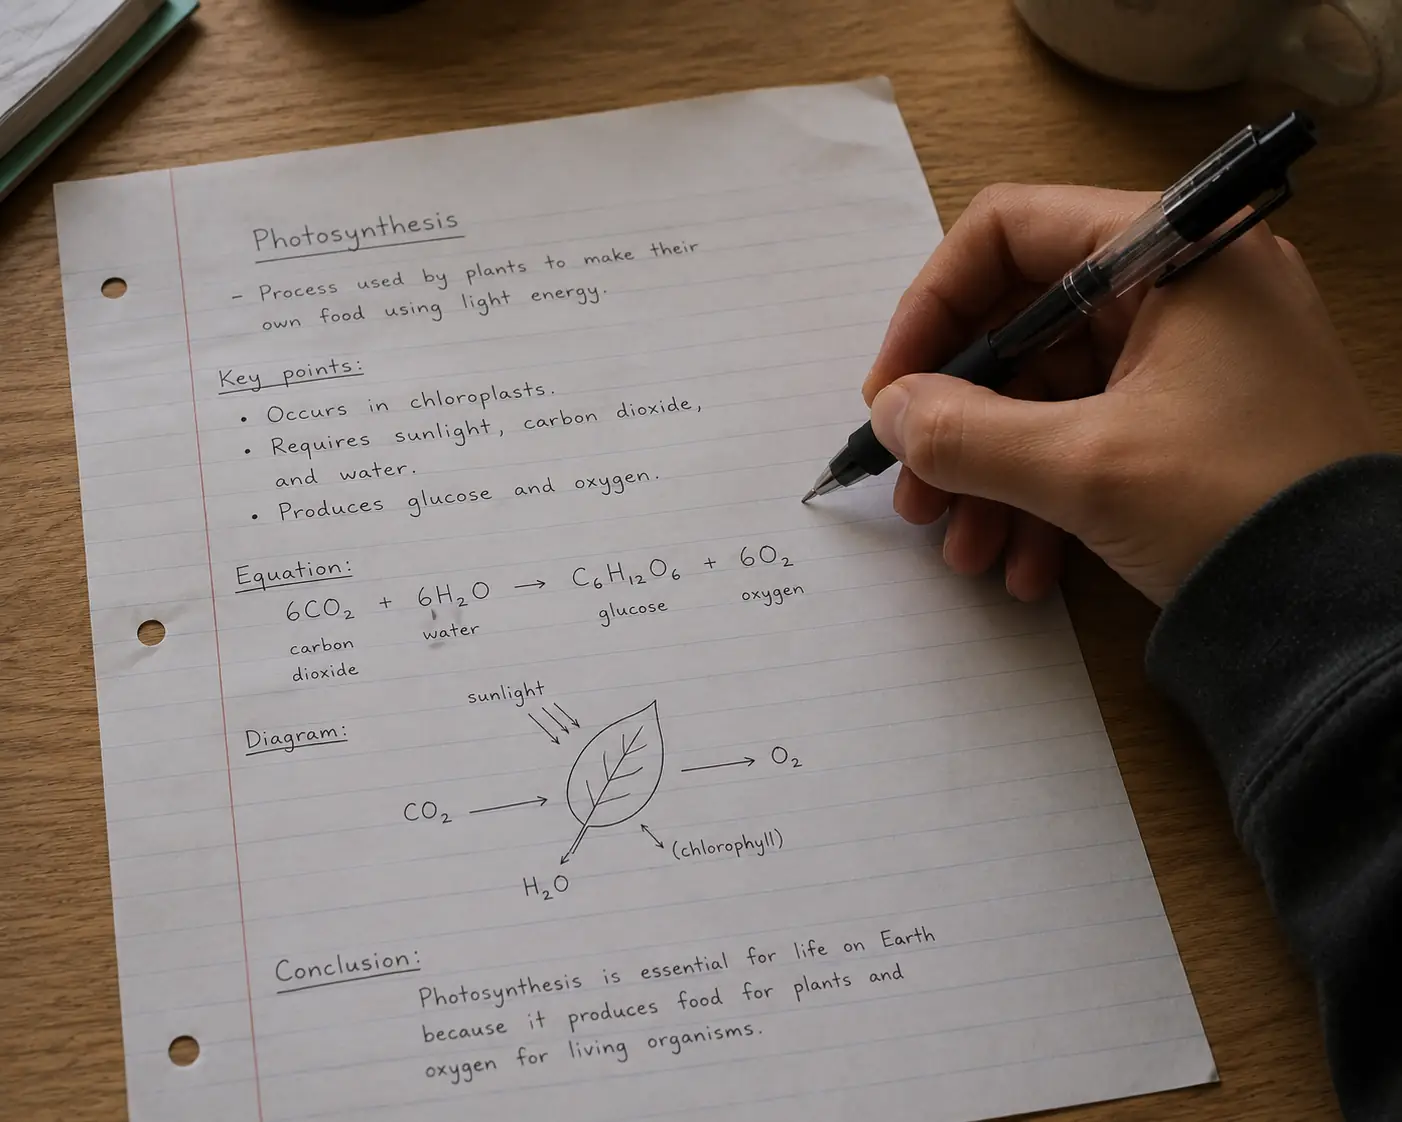 Photosynthesis
- Process used by plants to make their
own food using light energy.
Key points:
• Occurs in chloroplasts.
• Requires sunlight, carbon dioxide,
and water.
• Produces glucose and oxygen.
Equation:
6CO₂ + 6H₂O → C₆H₁₂O₆ + 6O₂
carbon dioxide water glucose oxygen
Diagram:
sunlight
CO₂ → → O₂
(chlorophyll)
H₂O
Conclusion:
Photosynthesis is essential for life on Earth
because it produces food for plants and
oxygen for living organisms.